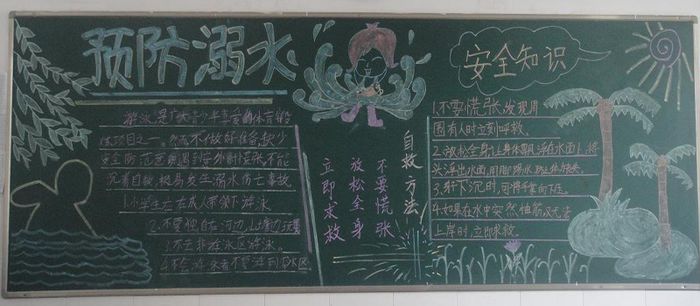 预防溺水
游泳是广大青少年喜爱的体育锻
炼项目之一。然而不做好准备,缺少
安全防范意识,遇到意外时慌张,不能
沉着自救,极易发生溺水伤亡事故
1.小学生应在成人带领下游泳
2.不要独自在河边、山塘边玩耍
3.不去非游泳区游泳。
4.不会游泳者不要游到深水区
自救方法
不要慌张
放松全身
立即求救
安全知识
1.不要慌张,发现周
围有人时立刻呼救。
2.放松全身,让身体飘浮在水面上,将
头浮出水面,用脚踢水,防止体力丧失。
3.身体下沉时,可将手掌向下压。
4.如果在水中突然抽筋,又无法
上岸时,立即求救。